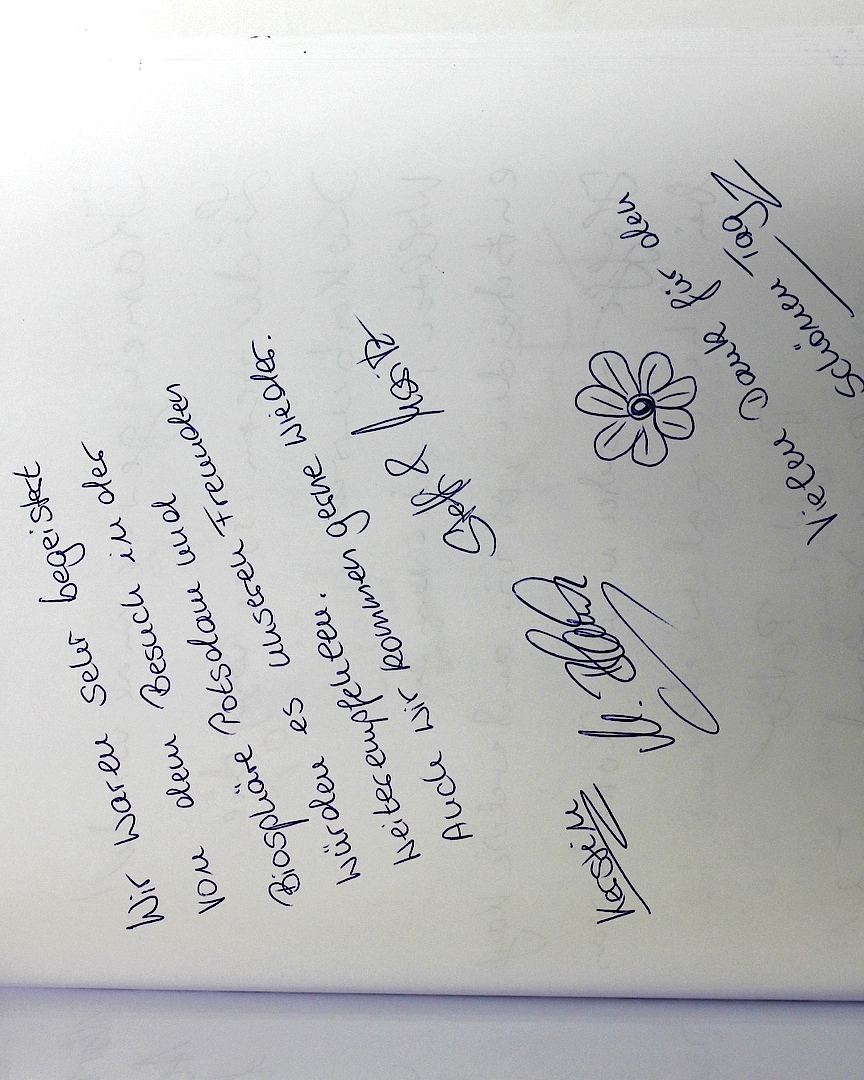 Wir waren sehr begeistert
von dem Besuch in der
Biosphäre Potsdam und
würden es unseren Freunden
weiterempfehlen.
Auch wir kommen gerne wieder.
Steffi &
Kerstin
Vielen Dank für den
schönen Tag